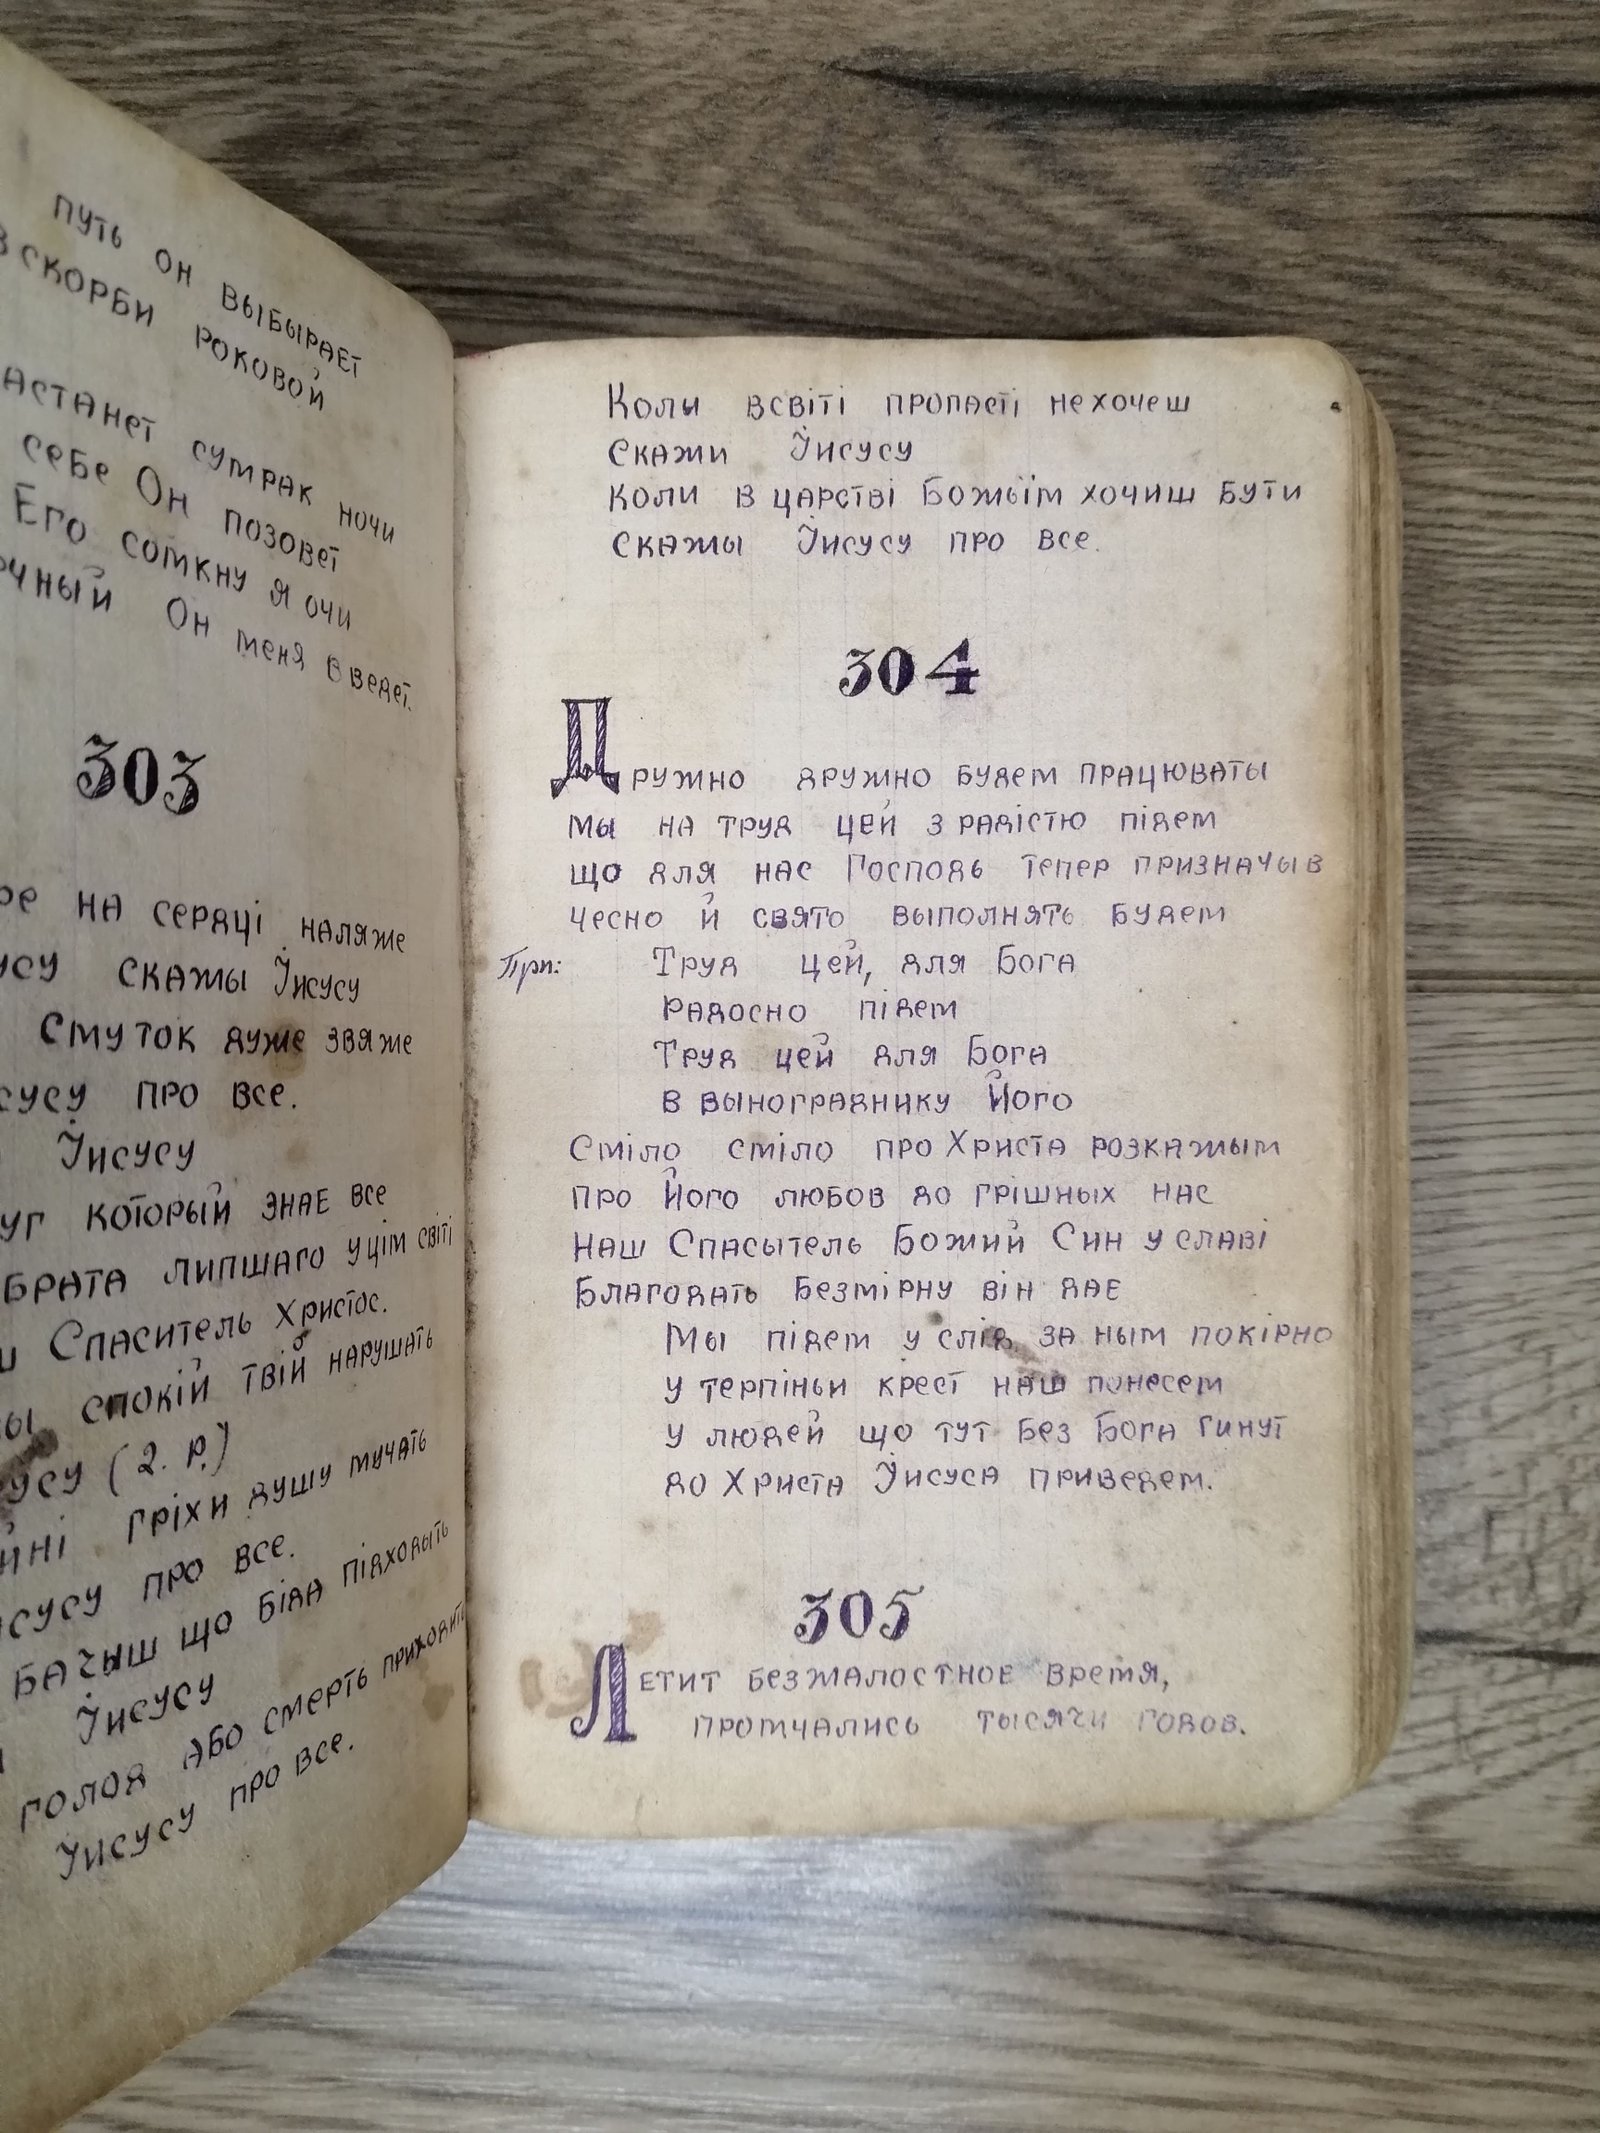 путь он выбырает
вскорби роковой
астанет сутрак ночи
себе Он позовет
Его сомкну я очи
чный Он меня введет.
303
ре на сердці наляже
усу скажы Їисусу
Смуток дуже звяже
сусу про все.
Їисусу
уг который знае все
брата липшаго уцім світі
Спаситель Христос.
ы спокій твій нарушать
усу (2. р.)
йні гріхи душу мучать
сусу про все.
бачыш що біда підходыть
Їисусу
голод або смерть приходить
Їисусу про все.
Колы всвіті пропасті нехочеш
Скажи Їисусу
Коли в царстві Божьїм хочиш бути
Скажы Їисусу про все.
304
Дружно дружно будем працюваты
мы на труд цей з радістю підем
що для нас Господь тепер призначыв
чесно й свято выполнять будем
Прп: Труд цей, для Бога
радосно підем
Труд цей для Бога
в выноградныку Його
Сміло сміло про Христа розкажым
про Його любов до грішных нас
наш Спасытель Божий Син у славі
Благодать безмірну він дає
Мы підем у слід за ным покірно
у терпіньи крест наш понесем
у людей що тут без Бога гинут
до Христа Їисуса приведем.
305
Летит безжалостное время,
промчались тысячи годов.